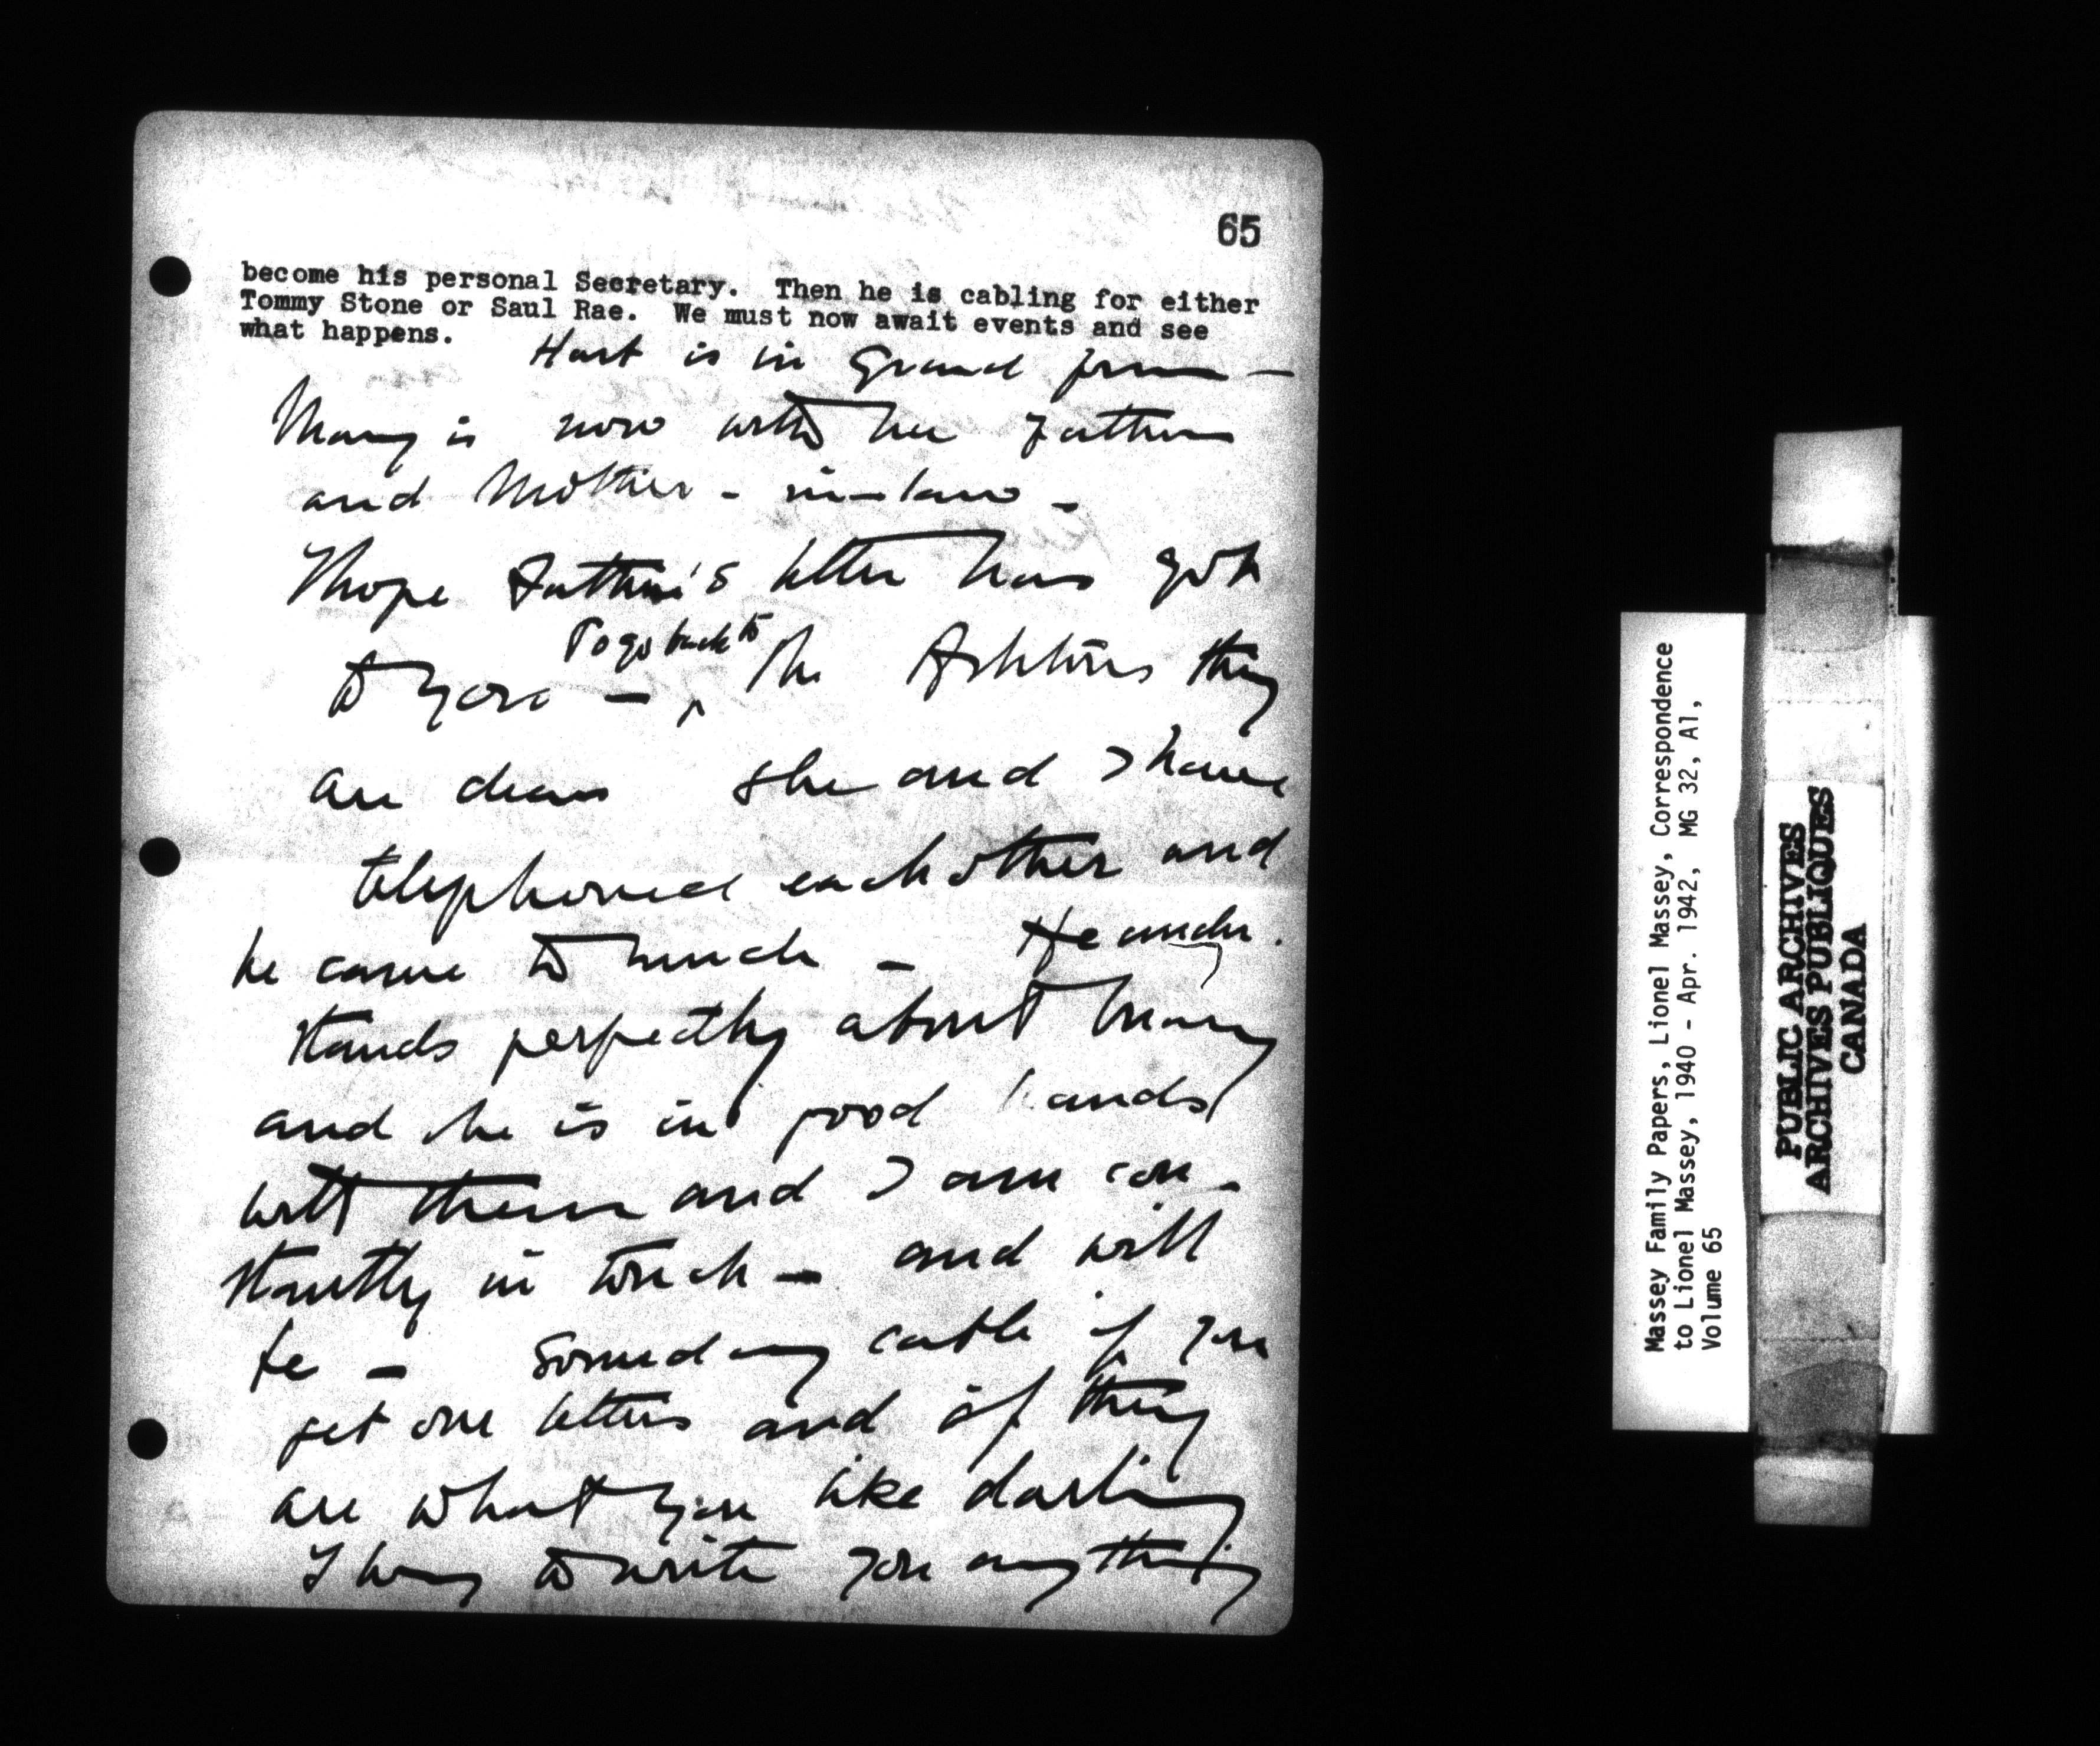 65
become his personal Secretary. Then he is cabling for either
Tommy Stone or Saul Rae. We must now await events and see
what happens.
Hart is in Grand form —
Mary is now with her Father
and Mother - in-law -
I hope Father's letter has got
to you — To go back to the Ashtons they
are dears she and I have
telephoned each other and
he came to lunch — He under.
stands perfectly about Mary
and she is in good hands
with them and I am con-
stantly in touch — and will
be — Someday cable if you
get our letters and if they
are what you like darling
I long to write you anything
Massey Family Papers, Lionel Massey, Correspondence
to Lionel Massey, 1940 - Apr. 1942, MG 32, A1,
Volume 65
PUBLIC ARCHIVES
ARCHIVES PUBLIQUES
CANADA